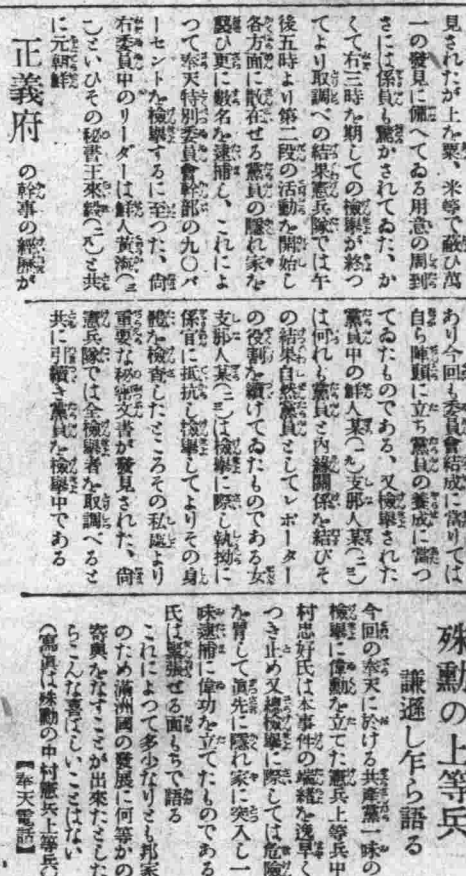 見されたが上を粟、米等で蔽ひ萬
一の發見に備へてゐる用意の周到
さには係員も驚かされてゐた、か
くて右三時を期しての檢擧が終つ
てより取調べの結果憲兵隊では午
後五時より第二段の活動を開始し
各方面に散在せる黨員の隱れ家を
襲ひ更に數名を逮捕し、これによ
つて奉天特別委員會幹部の九〇パ
ーセントを檢擧するに至つた、尙
右委員中のリーダーは鮮人黃海(三
)といひその秘書王來毅(二九)と共
に元朝鮮
正義府 の幹事の經歷が
あり今回も委員會結成に當りては
自ら陣頭に立ち黨員の養成に當つ
てゐたものである、又檢擧された
黨員中の鮮人某(一九)支那人某(二三)
は何れも黨員と內緣關係を結びそ
の結果自然黨員としてレポーター
の役割を續けてゐたものである女
支那人某(二三)は檢擧に際し執拗に
係官に抵抗し檢擧してよりその身
體を檢査したところその私處より
重要な秘密文書が發見された、尙
憲兵隊では全檢擧者を取調べると
共に引續き黨員を檢擧中である
殊勳の上等兵
謙遜し乍ら語る
今回の奉天に於ける共產黨一味の
檢擧に偉勳を立てた憲兵上等兵中
村忠好氏は本事件の端緒を逸早く
つき止め又總檢擧に際しては危險
を冒して眞先に隱れ家に突入し一
味逮捕に偉功を立てたものである
氏は緊張せる面もちで語る
これによつて多少なりとも邦家
のため滿洲國の發展に何等かの
寄與をなすことが出來たとした
らこんな喜ばしいことはない
(寫眞は殊勳の中村憲兵上等兵)
【奉天電話】